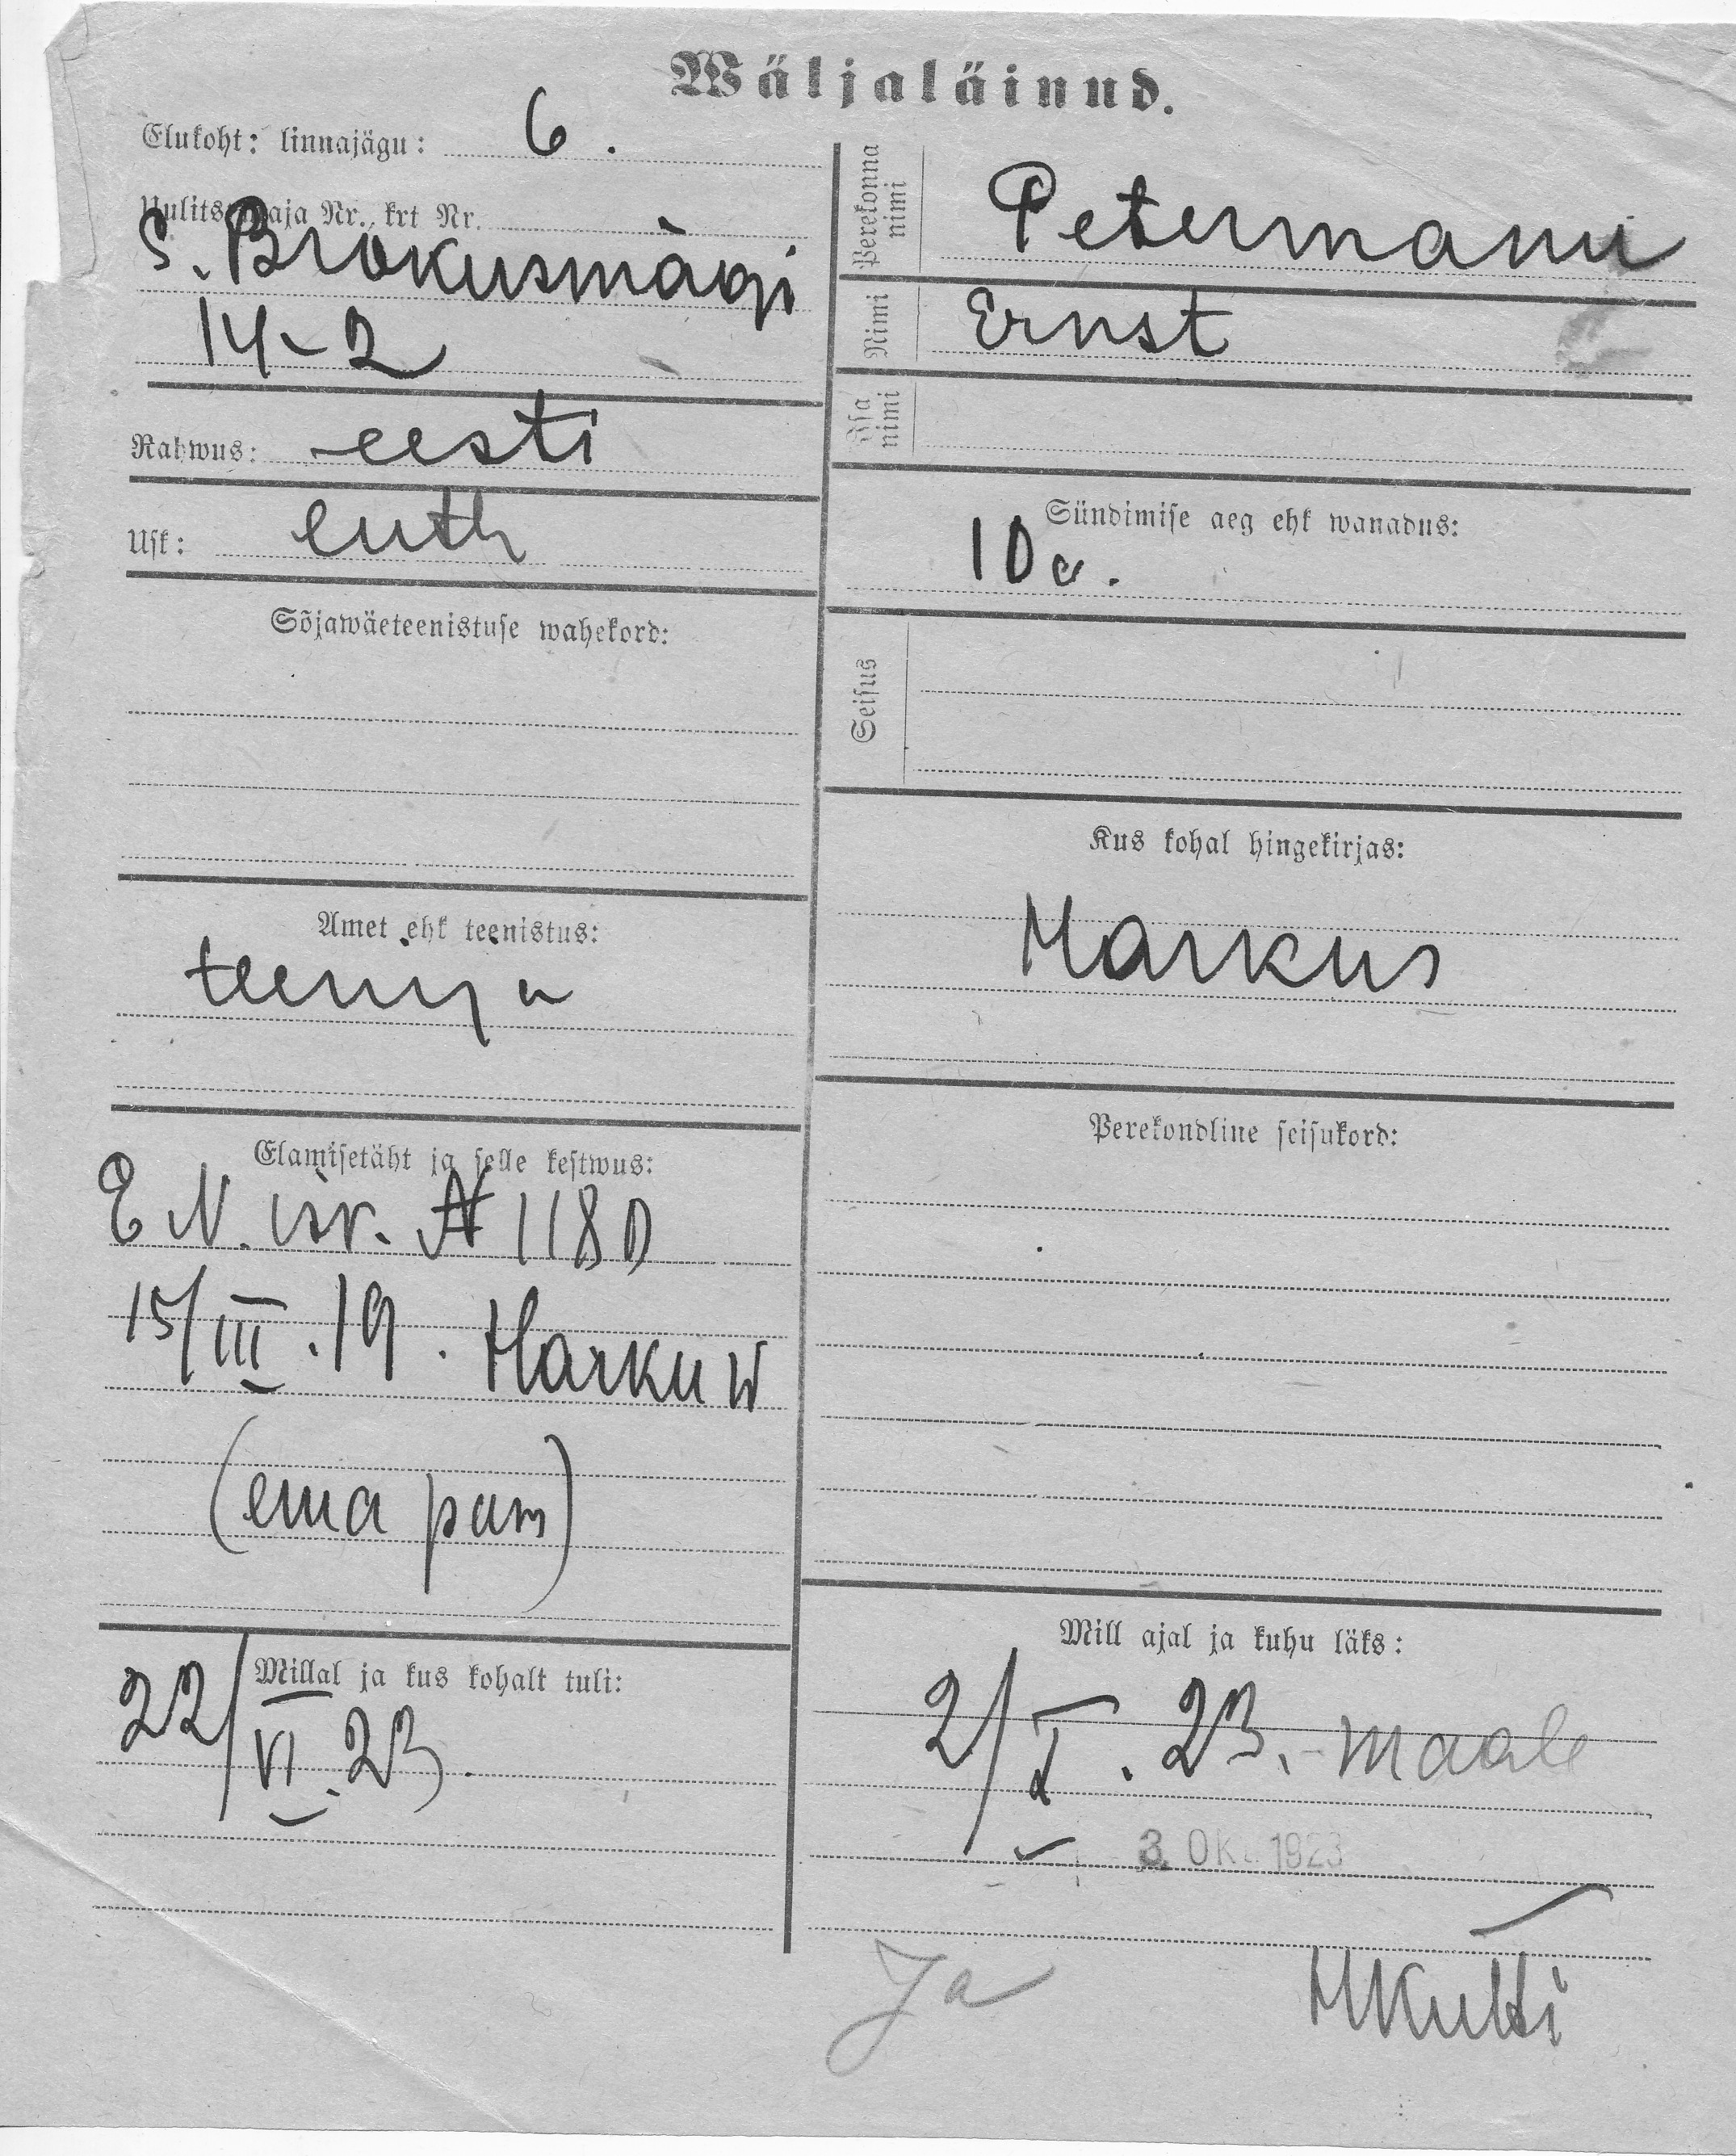 Wäljaläinud.
Elukoht: linnajägu: 6.
Uulits, maja Nr., krt Nr.
S. Brokusmägi
14-2
Rahwus: eesti
Usk: luth
Sõjawäeteenistuse wahekord:
Amet ehk teenistus:
teenija
Elamisetäht ja selle kestwus:
E N. isv. № 1180
15/III.19. Harku W
(ema pass)
Millal ja kus kohalt tuli:
22/VI.23.
Perekonna nimi
Petermann
Nimi
Ernst
Isa nimi
Sündimise aeg ehk wanadus:
10 a.
Seisus
Kus kohal hingekirjas:
Harkus
Perekondline seisukord:
Mill ajal ja kuhu läks:
2/X.23. - maale
3. OKT. 1923
Ja